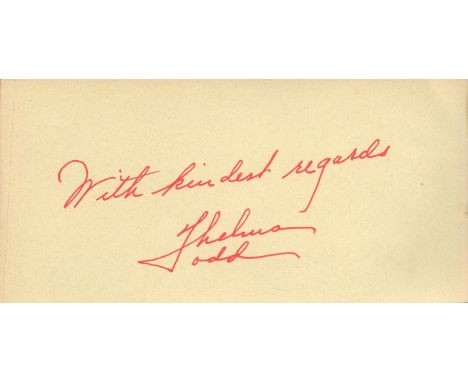 With kindest regards
Thelma
Todd